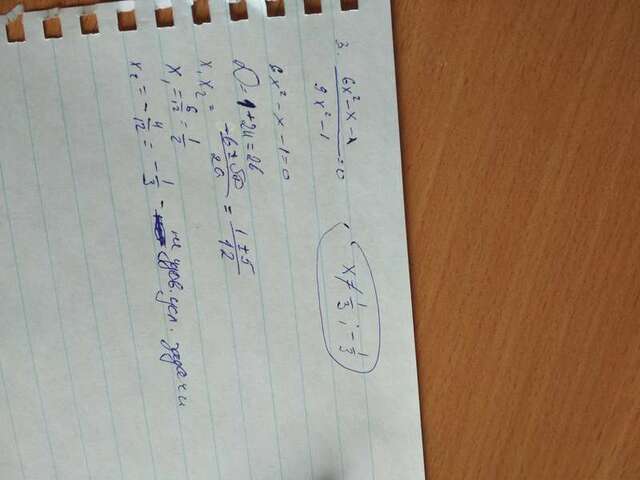 3. (6x²-x-1)/(9x²-1)=0
x≠1/3; -1/3
6x²-x-1=0
D=1+24=26
x₁x₂= (-b±√D)/2a = (1±5)/12
x₁=6/12=1/2
x₂=-4/12=-1/3 - не удов. усл. задачи